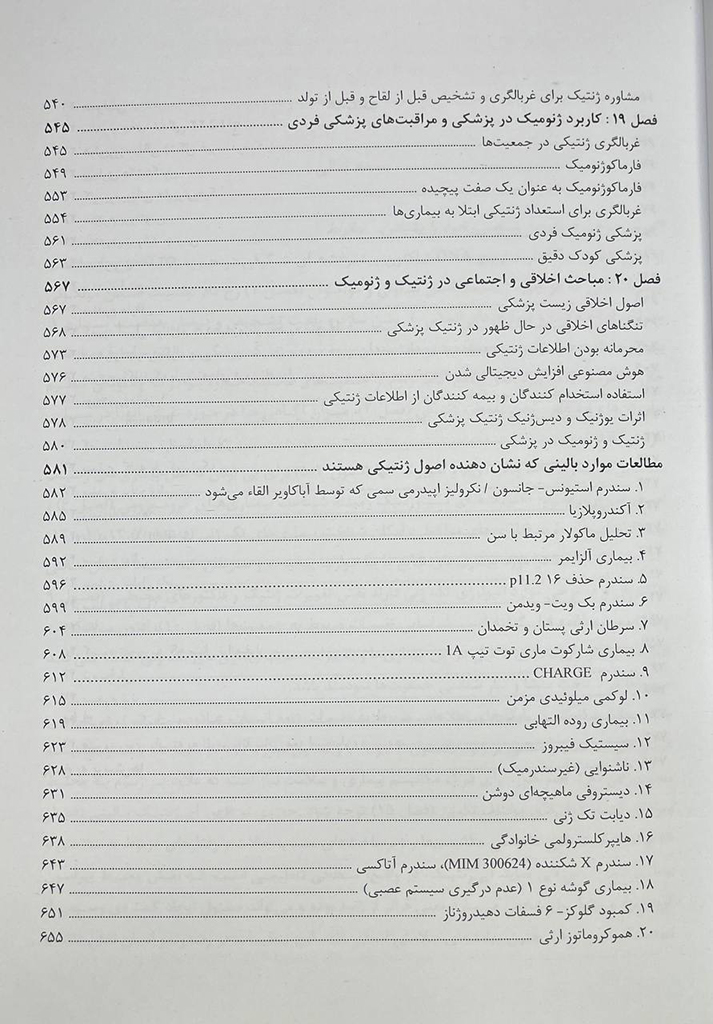 مشاوره ژنتیک برای غربالگری و تشخیص قبل از لقاح و قبل از تولد ................ ۵۴۰
فصل ۱۹ : کاربرد ژنومیک در پزشکی و مراقبت‌های پزشکی فردی ................ ۵۴۵
غربالگری ژنتیکی در جمعیت‌ها ................ ۵۴۵
فارماکوژنومیک ................ ۵۴۹
فارماکوژنومیک به عنوان یک صفت پیچیده ................ ۵۵۳
غربالگری برای استعداد ژنتیکی ابتلا به بیماری‌ها ................ ۵۵۴
پزشکی ژنومیک فردی ................ ۵۶۱
پزشکی کودک دقیق ................ ۵۶۳
فصل ۲۰ : مباحث اخلاقی و اجتماعی در ژنتیک و ژنومیک ................ ۵۶۷
اصول اخلاقی زیست پزشکی ................ ۵۶۷
تنگناهای اخلاقی در حال ظهور در ژنتیک پزشکی ................ ۵۶۸
محرمانه بودن اطلاعات ژنتیکی ................ ۵۷۳
هوش مصنوعی افزایش دیجیتالی شدن ................ ۵۷۶
استفاده استخدام کنندگان و بیمه کنندگان از اطلاعات ژنتیکی ................ ۵۷۷
اثرات یوژنیک و دیس‌ژنیک ژنتیک پزشکی ................ ۵۷۸
ژنتیک و ژنومیک در پزشکی ................ ۵۸۰
مطالعات موارد بالینی که نشان دهنده اصول ژنتیکی هستند ................ ۵۸۱
۱. سندرم استیونس- جانسون / نکرولیز اپیدرمی سمی که توسط آباکاویر القاء می‌شود ................ ۵۸۲
۲. آکندروپلازیا ................ ۵۸۵
۳. تحلیل ماکولار مرتبط با سن ................ ۵۸۹
۴. بیماری آلزایمر ................ ۵۹۲
۵. سندرم حذف ۱۶ p11.2 ................ ۵۹۶
۶. سندرم بک ویت- ویدمن ................ ۵۹۹
۷. سرطان ارثی پستان و تخمدان ................ ۶۰۴
۸. بیماری شارکوت ماری توت تیپ 1A ................ ۶۰۸
۹. سندرم CHARGE ................ ۶۱۲
۱۰. لوکمی میلوئیدی مزمن ................ ۶۱۵
۱۱. بیماری روده التهابی ................ ۶۱۹
۱۲. سیستیک فیبروز ................ ۶۲۳
۱۳. ناشنوایی (غیرسندرمیک) ................ ۶۲۸
۱۴. دیستروفی ماهیچه‌ای دوشن ................ ۶۳۱
۱۵. دیابت تک ژنی ................ ۶۳۵
۱۶. هایپرکلسترولمی خانوادگی ................ ۶۳۸
۱۷. سندرم X شکننده (MIM 300624)، سندرم آتاکسی ................ ۶۴۳
۱۸. بیماری گوشه نوع ۱ (عدم درگیری سیستم عصبی) ................ ۶۴۷
۱۹. کمبود گلوکز- ۶ فسفات دهیدروژناز ................ ۶۵۱
۲۰. هموکروماتوز ارثی ................ ۶۵۵